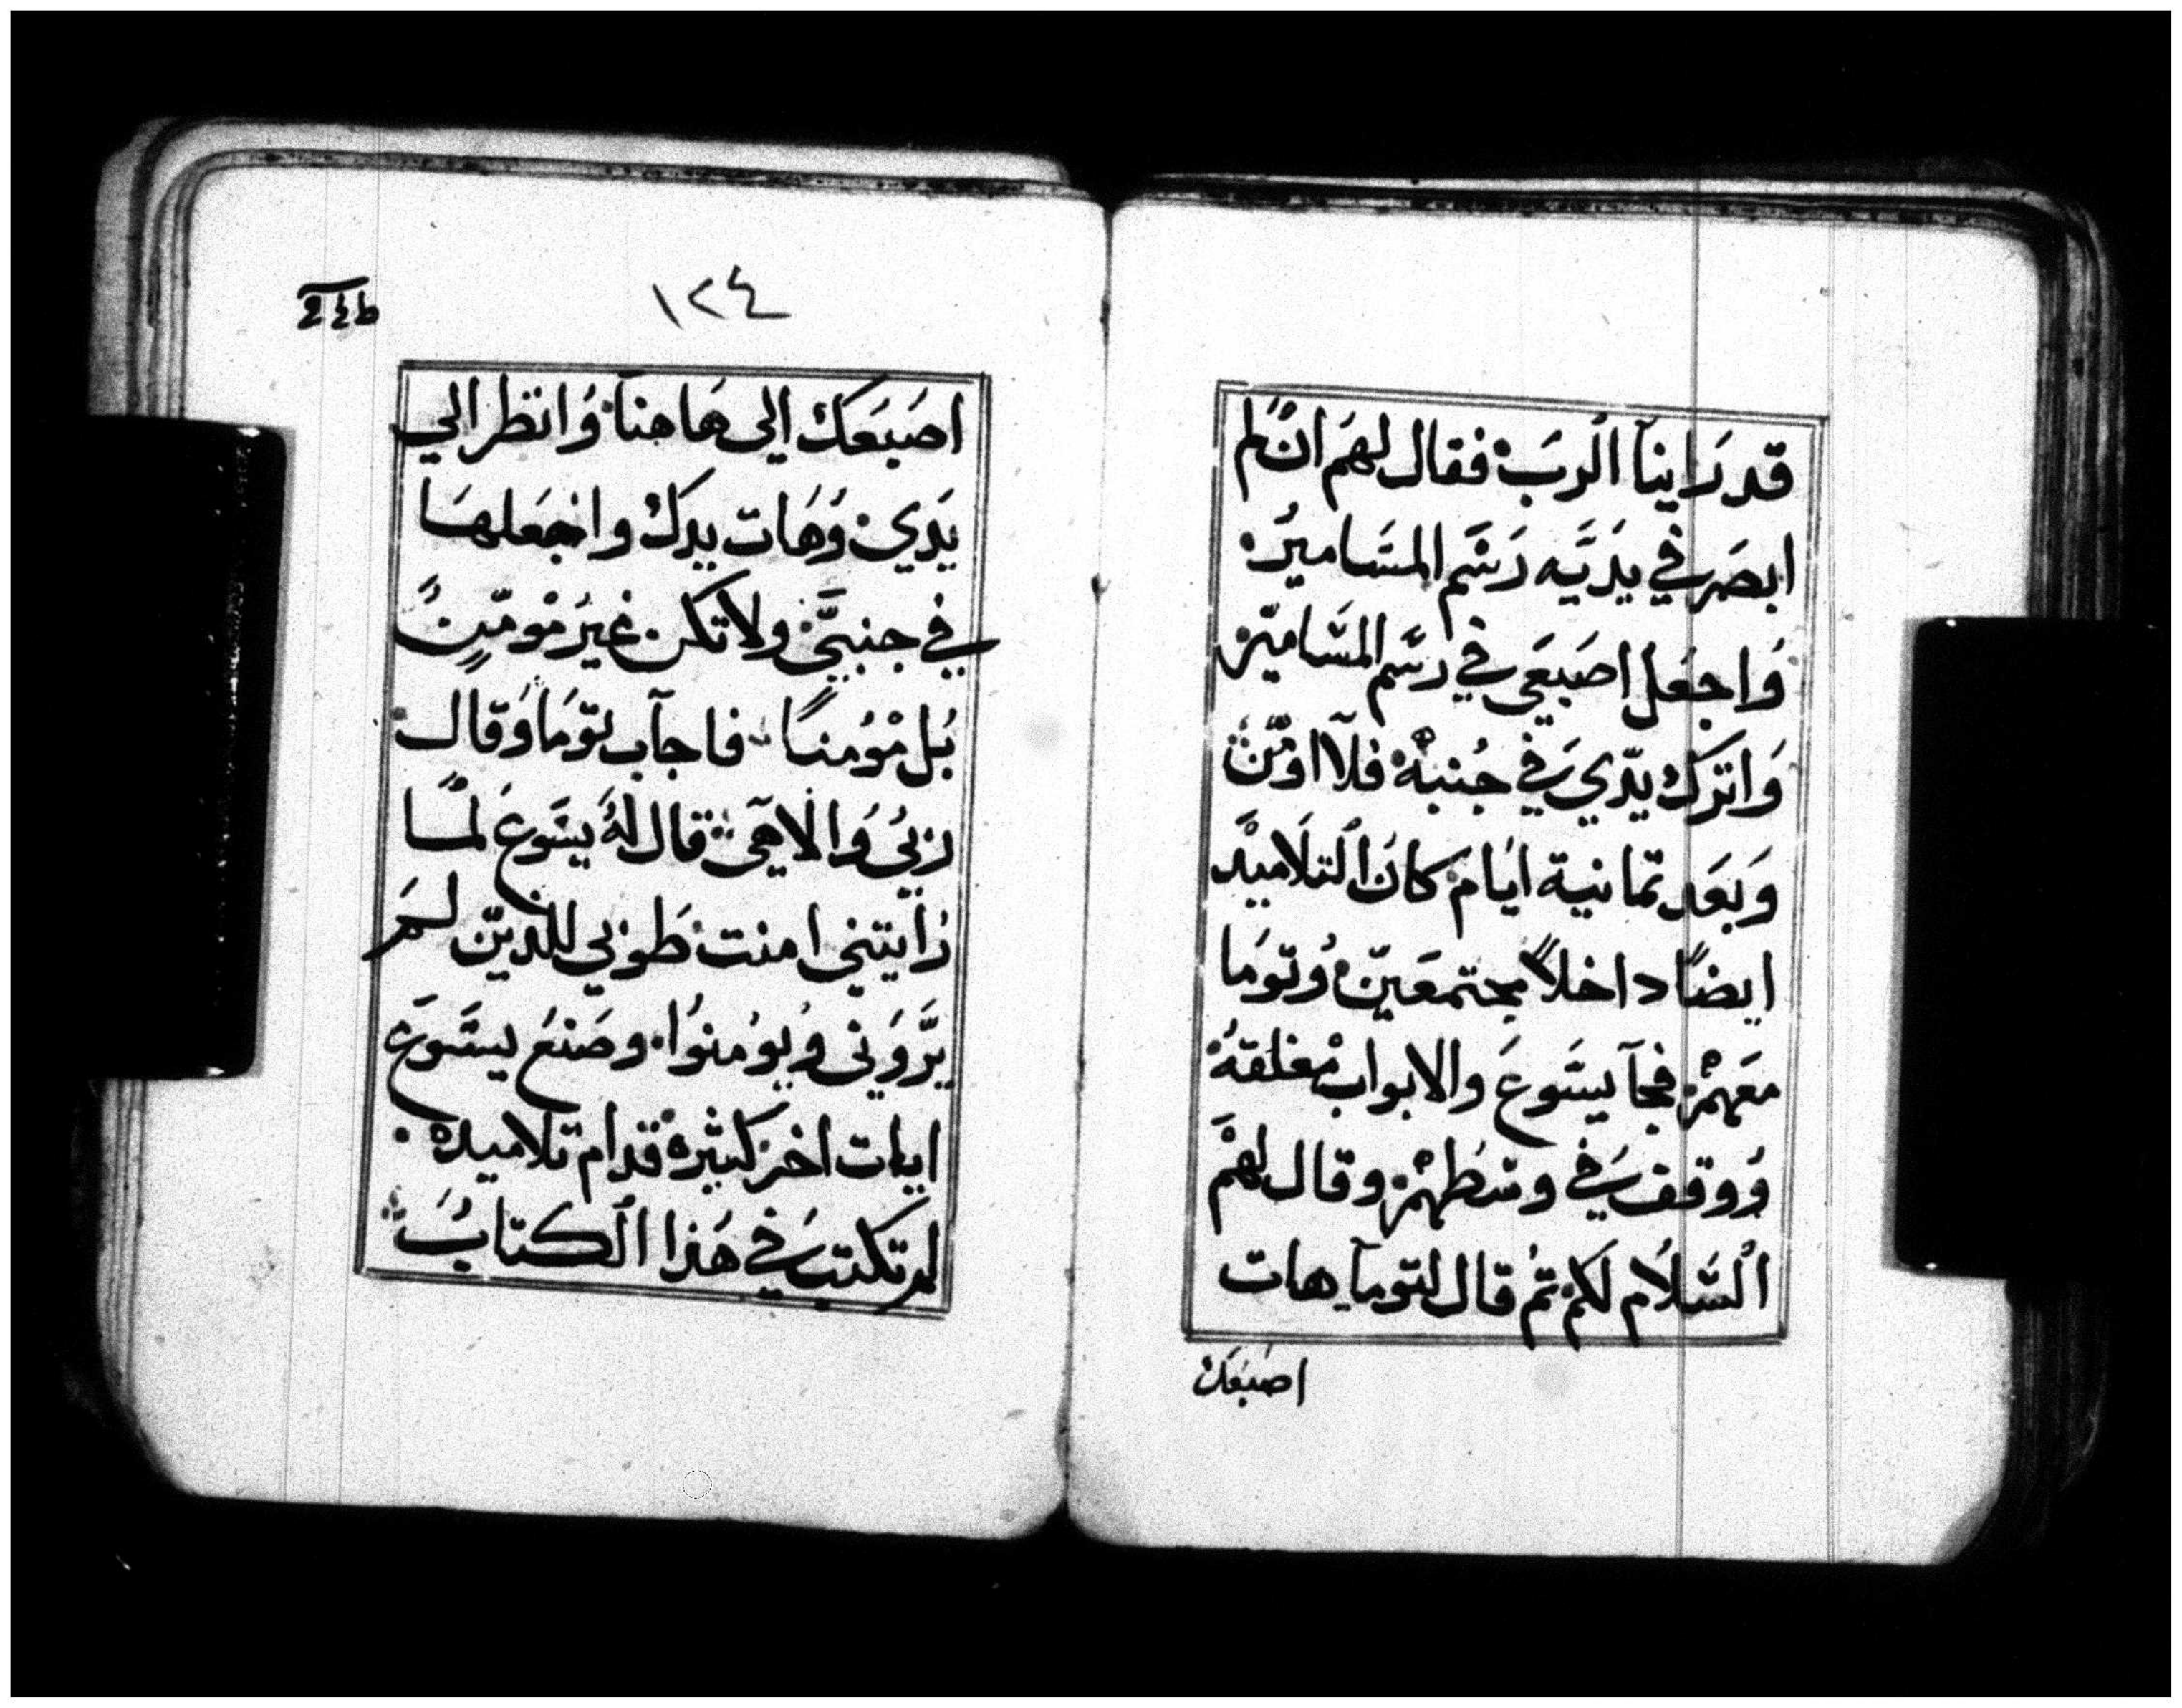 قد رَاينآ الربَ فقال لهَم ان لم
ابصَر في يدَيَه رَسَم المسَاميرُ
وَاجعَل اصَبعَى في رسَم المسَاميَر
وَاترك يدّي في جُنبهْ فلآ اومَن
وَبعَد تمانية ايَام كانَ التلَاميدَ
ايضًا داخلاً مجتمعَينَ وُتوَما
معَهمْ فجآ يسَوعَ والابواب مْغلقهُ
وُوقف في وسَطهمْ وقال لهمَ
السَلاُم لكم تمُ قال لتومآ هات
اصبعك
١٢٤
اصَبعَكَ الى هَاهنآ وُانظر الي
يَدَي وُهَات يدكَ واجَعَلهَا
في جنبيَ ولا تكن غيرَ مْومَنٍ
بُل مْوُمنًا فاجآب توَمَا وَقال
رَبيُ وُالاهَى قال لهُ يسَوعَ لمًا
رُأيتنى امنت طَوبي للديَن لمَ
يرََوَنى وُيوُمنوُا وصَنعُ يسَوعَ
ايات اخر كثيرهْ قدام تلاميدهْ
لم تكتب في هَذا الكتابُ